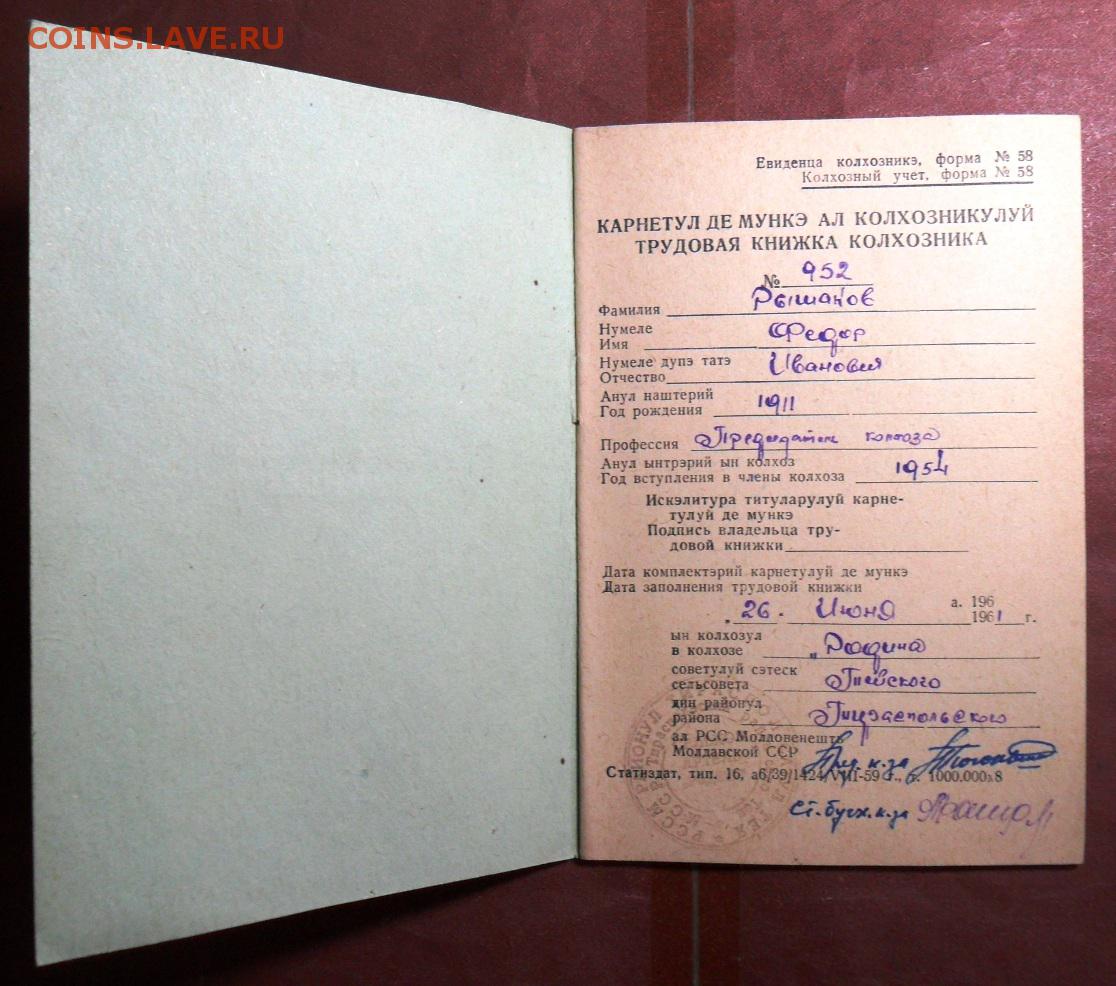 COINS.LAVE.RU
Евиденца колхозникэ, форма № 58
Колхозный учет, форма № 58
КАРНЕТУЛ ДЕ МУНКЭ АЛ КОЛХОЗНИКУЛУЙ
ТРУДОВАЯ КНИЖКА КОЛХОЗНИКА
№ 952
Фамилия Рышаков
Нумеле
Имя Федор
Нумеле дупэ татэ
Отчество Иванович
Анул наштерий
Год рождения 1911
Профессия Председатель колхоза
Анул ынтрэрий ын колхоз
Год вступления в члены колхоза 1951
Искэлитура титуларулуй карне-
тулуй де мункэ
Подпись владельца тру-
довой книжки
Дата комплектэрий карнетулуй де мункэ
Дата заполнения трудовой книжки
а. 196
„26 - Июня 1961 г.
ын колхозул
в колхозе „Родина
советулуй сэтеск
сельсовета
дин районул
района Тираспольского
ал РСС Молдовенешть
Молдавской ССР Пред. к-за
Статиздат, тип. 16, аб/39/1424/VIII-59 г., т. 1000.000 8
Ст. бух. к-за